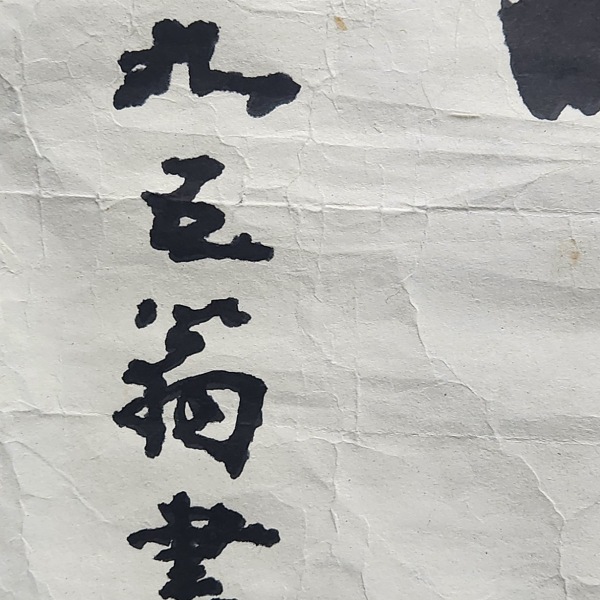 九五翁書